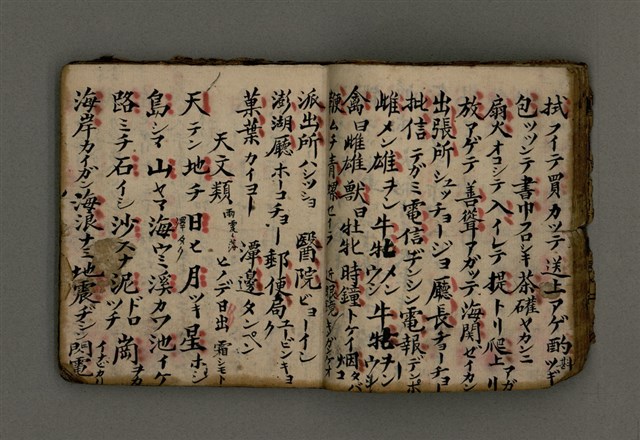 拭フイテ買カツテ送上アゲ酌ツギ
包ツツンデ書巾フロシキ茶確ヤカンニ
扇火オコシテ入イレテ提トリ爬上リアガ
放アゲテ善聳アガツテ海関ゼイカン
出張所シュッチョージョ廳長チョーチョー
批信テガミ電信デンシン電報デンポー
雌メン雄ヲン牛牝メンウシ牛牡ヲンウシ
禽曰雌雄獣曰牡牝時鐘トケイ烟タバコ
鞭ムチ青螺セイラ
派出所ハシツショ醫院ビョーイン
澎湖廳ホーコチョー郵便局ユービンキョク
菓葉カイヨー潭邊タンペン
天文類ヒノデ日出霜シモト
天テン地チ日ヒ月ツキ星ホシ
島シマ山ヤマ海ウミ溪カワ池イケ
路ミチ石イシ沙スナ泥ドロツチ崗ヲカ
海岸カイガン海浪ナミ地震ヂシン閃電イナビカリ